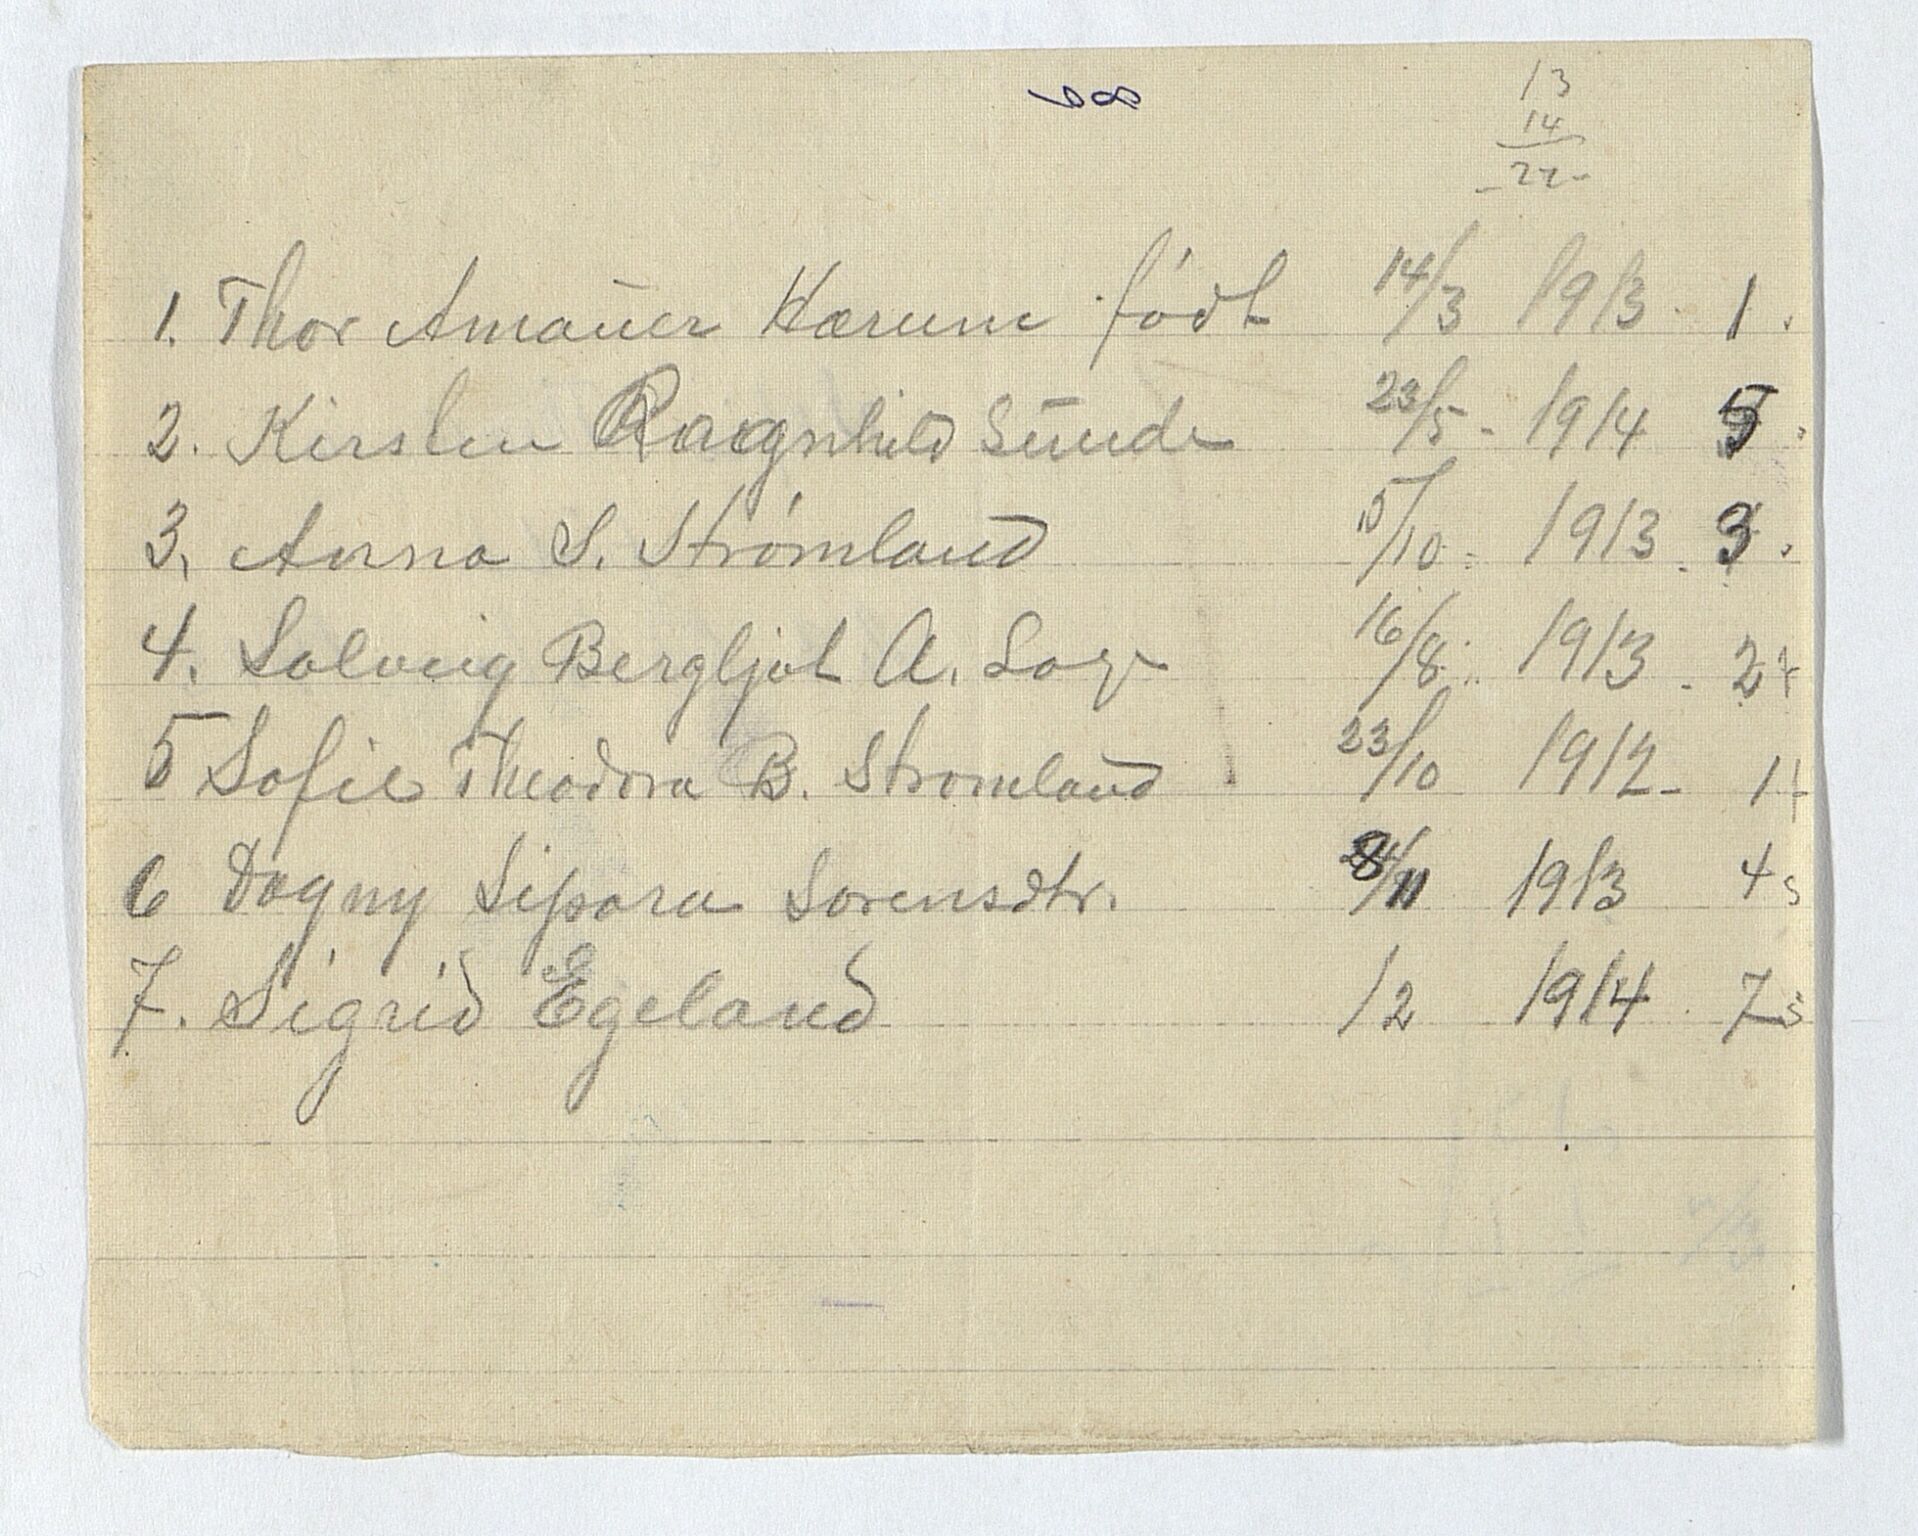 68
13
14
27
1. Thor Amauer Kærum født 14/3 1913. 1.
2. Kirsten Ragnhild Sunde 23/5 - 1914 5.
3. Anna S. Strømland 15/10 - 1913. 3.
4. Solveig Bergljot A. 16/8 1913. 2
5 Sofie Theodora B. Stromland 23/10 1912 - 1
6 Dagny Sipora Sorensdtr. /11 1913 4
7. Sigrid Egeland /2 1914. 7